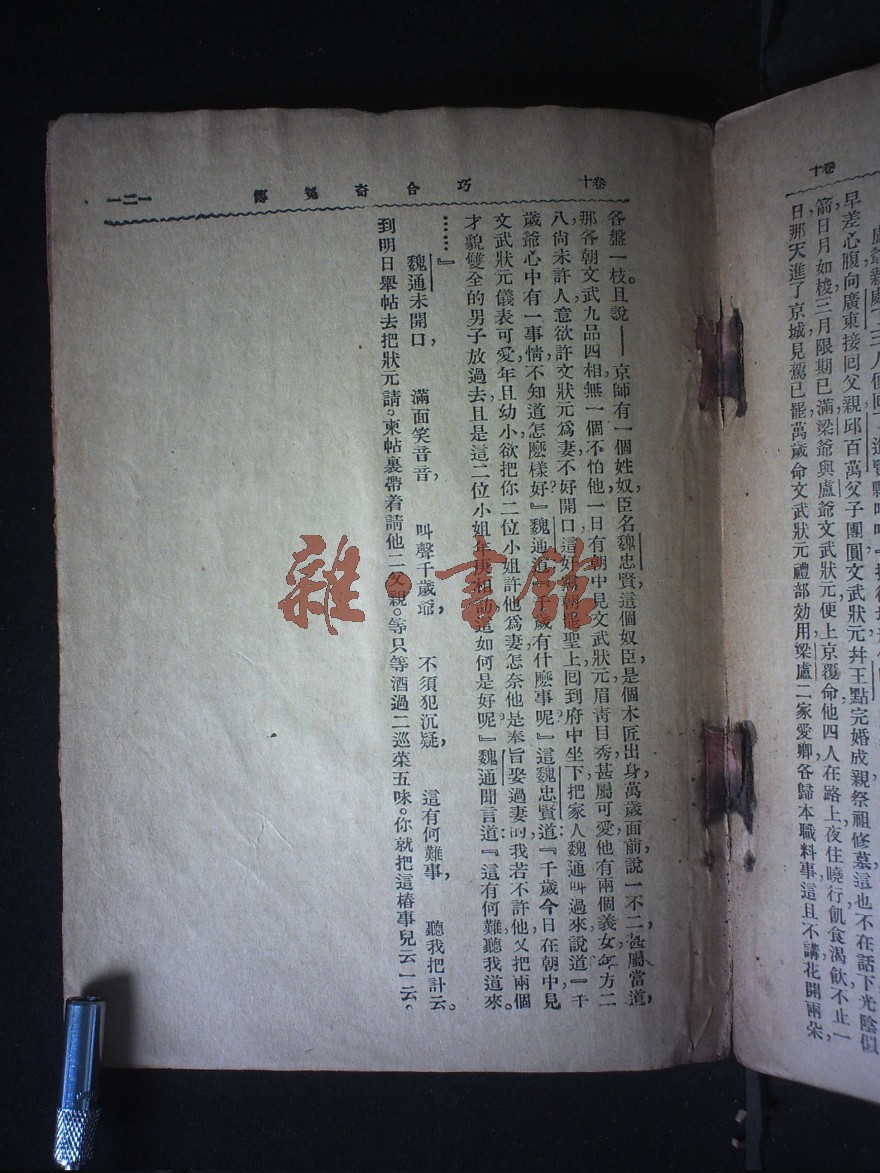 卷十
早差心腹向廣東接回父親邱百萬父子團圓文武狀元幷王點完婚成親祭祖修墓這也不在話下光陰似
箭日月如梭三月限期已滿梁爺與盧爺文武狀元便上京覆命他四人在路上夜住曉行飢食渴飲不止一
日那天進了京城見駕已罷萬歲命文武狀元禮部効用梁盧二家愛卿各歸本職料事這且不講花開兩朵
卷十
巧合奇冤傳
一二一
各盤一枝。且說——京師有一個姓奴臣名魏忠賢，這個奴臣，是個木匠出身，萬歲面前，說一不二，甚屬當道，
那各朝文武九品四相，無一個不怕他，一日有朝中見文武狀元眉青目秀，甚屬可愛，他有兩個義女，年方二
八，尚未許人，意欲許文武狀元爲妻，不好開口，這好罷聖上回到府中坐下，把家人魏通叫過來，說道：『千
歲爺心中有一事情，不知道怎麼樣好？』魏通道：『千歲有什麼事呢？』這魏忠賢道：『千歲今日在朝中見
文武狀元儀表可愛，年且幼小，欲把你二位小姐許他爲妻，怎奈他是奉旨娶過妻的，我若不許他，又把兩個
才貌雙全的男子放過去，且是這二位小姐年庚相，這如何是好呢？』魏通聞言道：『這有何難，聽我道來。
……』
魏通未開口，　滿面笑音音，　叫聲千歲爺，　不須犯沉疑，　這有何難事　聽我把計云。
到明日舉帖去把狀元請。柬帖裏帶着請他二父親。等只等酒過二巡菜五味。你就把這樁事兒云一云，